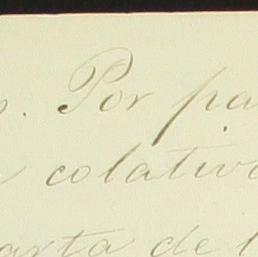 Por pa
colativ
arta de l